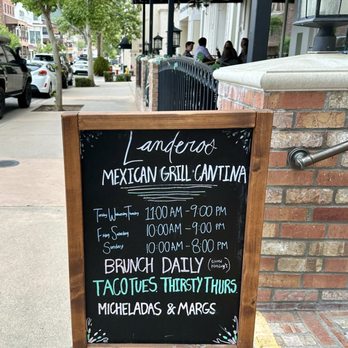 Landeros
MEXICAN GRILL & CANTINA
Tuesday Wednesday Thursday 11:00 AM - 9:00 PM
Friday Saturday 10:00 AM - 9:00 PM
Sunday 10:00 AM - 8:00 PM
BRUNCH DAILY (CLOSED MONDAYS)
TACO TUES. THIRSTY THURS
MICHELADAS & MARGS